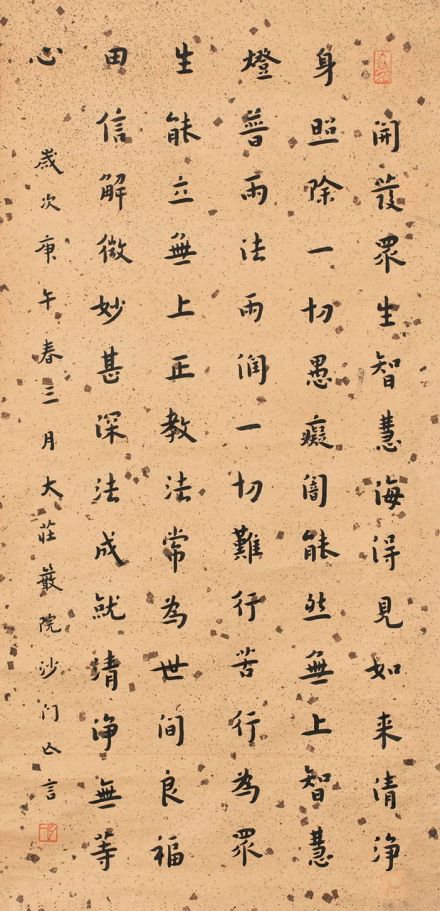 開發眾生智慧海得見如来清淨
身照除一切愚癡闇能然無上智慧
燈普雨法雨润一切難行苦行為眾
生能立無上正教法常為世间良福
田信解微妙甚深法成就清淨無等
心
歲次庚午春三月大莊嚴院沙门一言